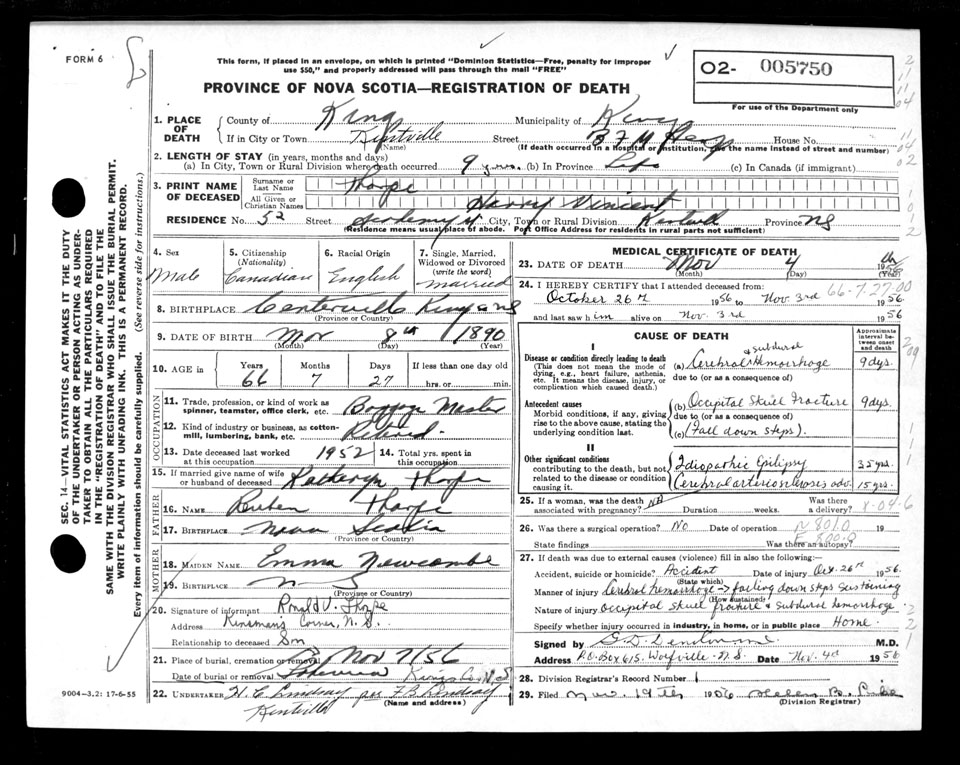 FORM 6
This form, if placed in an envelope, on which is printed "Dominion Statistics—Free, penalty for improper
use $50," and properly addressed will pass through the mail "FREE"
O2- 005750
PROVINCE OF NOVA SCOTIA—REGISTRATION OF DEATH
For use of the Department only
1. PLACE OF DEATH
County of Kings Municipality of Kings
If in City or Town Kentville Street House No.
(Name) (If death occurred in a Hospital or Institution, give the name instead of street and number)
2. LENGTH OF STAY (in years, months and days)
(a) In City, Town or Rural Division where death occurred 9 yrs. (b) In Province Life (c) In Canada (if immigrant)
3. PRINT NAME OF DECEASED
Surname or Last Name Thorpe
All Given or Christian Names Harry Vincent
RESIDENCE No. 52 Street Academy St City, Town or Rural Division Kentville Province NS
(Residence means usual place of abode. Post Office Address for residents in rural parts not sufficient)
4. Sex Male
5. Citizenship (Nationality) Canadian
6. Racial Origin English
7. Single, Married, Widowed or Divorced (write the word) married
8. BIRTHPLACE Centreville Kings NS
(Province or Country)
9. DATE OF BIRTH Mar 8th 1890
(Month) (Day) (Year)
10. AGE in Years 66 Months 7 Days 27 If less than one day old hrs. or min.
OCCUPATION
11. Trade, profession, or kind of work as spinner, teamster, office clerk, etc. Baggage Master
12. Kind of industry or business, as cotton-mill, lumbering, bank, etc. Retired.
13. Date deceased last worked at this occupation 1952
14. Total yrs. spent in this occupation
15. If married give name of wife or husband of deceased Katheryn Thorpe
FATHER
16. NAME Reuben Thorpe
17. BIRTHPLACE Nova Scotia
(Province or Country)
MOTHER
18. MAIDEN NAME Emma Newcombe
19. BIRTHPLACE N S
(Province or Country)
20. Signature of informant Ronald V. Thorpe
Address Kinsman's Corner, N.S.
Relationship to deceased Son
21. Place of burial, cremation or removal
Date of burial or removal Nov 7/56 Kings Co N.S
22. UNDERTAKER H C Lindsay per F B Lindsay
Kentville (Name and address)
MEDICAL CERTIFICATE OF DEATH
23. DATE OF DEATH Nov 4 1956
(Month) (Day) (Year)
24. I HEREBY CERTIFY that I attended deceased from:
66-7-27.00
October 26th 1956 to Nov. 3rd 1956.
and last saw him alive on Nov. 3rd 1956
CAUSE OF DEATH
Approximate interval between onset and death
I
Disease or condition directly leading to death
(This does not mean the mode of dying, e.g., heart failure, asthenia, etc. It means the disease, injury, or complication which caused death.)
(a) Cerebral & subdural Hemorrhage 9 dys.
due to (or as a consequence of)
Antecedent causes
Morbid conditions, if any, giving rise to the above cause, stating the underlying condition last.
(b) Occipital Skull Fracture 9 dys.
due to (or as a consequence of)
(c) (Fall down steps).
II
Other significant conditions
contributing to the death, but not related to the disease or condition causing it.
Idiopathic Epilipsy 35 yrs.
Cerebral arteriosclerosis adv. 15 yrs.
25. If a woman, was the death associated with pregnancy? NA Duration weeks. Was there a delivery?
26. Was there a surgical operation? No Date of operation 19
N 801.0
E 800.8
State findings Was there an autopsy?
27. If death was due to external causes (violence) fill in also the following:—
Accident, suicide or homicide? Accident Date of injury Oct. 26th 1956.
(State which)
Manner of injury Cerebral hemorrhage → falling down steps sustaining
(How sustained)
Nature of injury occipital skull fracture & subdural hemorrhage
Specify whether injury occurred in industry, in home, or in public place Home.
Signed by M.D.
Address P.O. Box 615. Wolfville. N.S Date Nov. 4th 1956
28. Division Registrar's Record Number 1
29. Filed Nov. 19th 1956
(Division Registrar)
9004—3.2: 17-6-55
SEC. 14—VITAL STATISTICS ACT MAKES IT THE DUTY
OF THE UNDERTAKER OR PERSON ACTING AS UNDER-
TAKER TO OBTAIN ALL THE PARTICULARS REQUIRED
IN THE "REGISTRATION OF DEATH" AND TO FILE THE
SAME WITH THE DIVISION REGISTRAR WHO SHALL ISSUE THE BURIAL PERMIT.
WRITE PLAINLY WITH UNFADING INK. THIS IS A PERMANENT RECORD.
Every item of information should be carefully supplied. (See reverse side for instructions.)